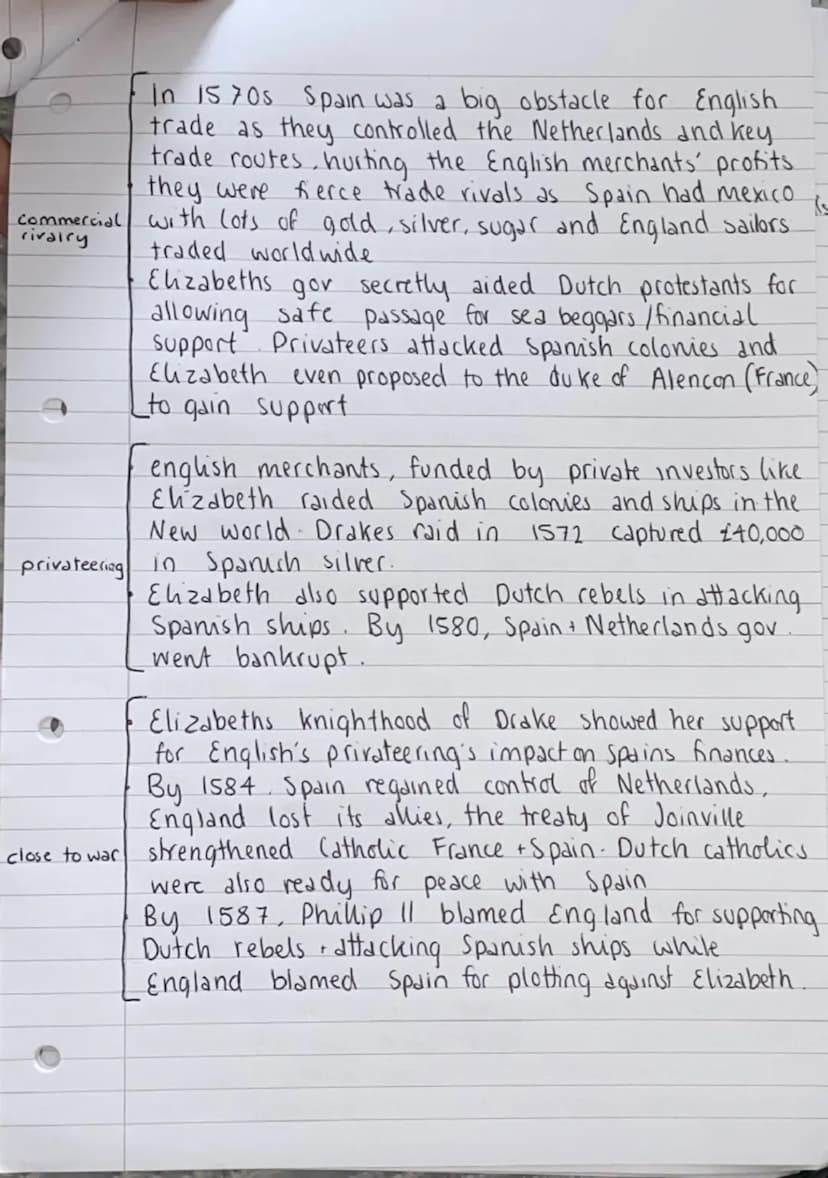 In 1570s Spain was a big obstacle for English
trade as they controlled the Netherlands and key
trade routes, hurting the English merchants' profits
they were fierce trade rivals as Spain had mexico
commercial rivalry
with lots of gold, silver, sugar and England sailors
traded worldwide
Elizabeths gov secretly aided Dutch protestants for
allowing safe passage for sea beggars /financial
support. Privateers attacked Spanish colonies and
Elizabeth even proposed to the duke of Alencon (France)
to gain support
english merchants, funded by private investors like
Elizabeth raided Spanish colonies and ships in the
New world. Drakes raid in 1572 captured £40,000
privateering
in Spanish silver.
Elizabeth also supported Dutch rebels in attacking
Spanish ships. By 1580, Spain + Netherlands gov.
went bankrupt.
Elizabeths knighthood of Drake showed her support
for English's privateering's impact on Spains finances.
By 1584, Spain regained control of Netherlands,
England lost its allies, the treaty of Joinville
close to war
strengthened Catholic France + Spain. Dutch catholics
were also ready for peace with Spain
By 1587, Phillip II blamed England for supporting
Dutch rebels + attacking Spanish ships while
England blamed Spain for plotting against Elizabeth.